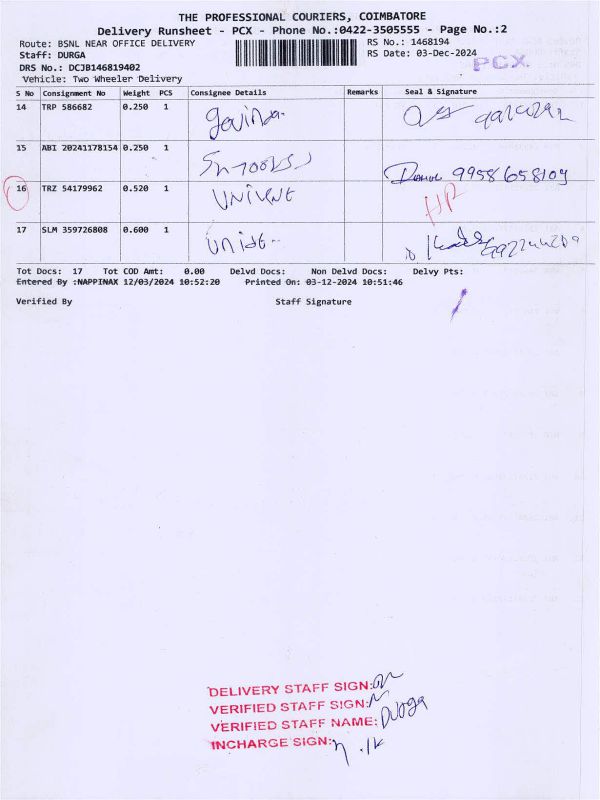 THE PROFESSIONAL COURIERS, COIMBATORE
Delivery Runsheet - PCX - Phone No.:0422-3505555 - Page No.:2
Route: BSNL NEAR OFFICE DELIVERY RS No.: 1468194
Staff: DURGA RS Date: 03-Dec-2024
PCX
DRS No.: DCJB146819402
Vehicle: Two Wheeler Delivery
S No Consignment No Weight PCS Consignee Details Remarks Seal & Signature
14 TRP 586682 0.250 1
15 ABI 20241178154 0.250 1
9958658109
16 TRZ 54179962 0.520 1
HP
17 SLM 359726808 0.600 1
Tot Docs: 17 Tot COD Amt: 0.00 Delvd Docs: Non Delvd Docs: Delvy Pts:
Entered By :NAPPINAX 12/03/2024 10:52:20 Printed On: 03-12-2024 10:51:46
Verified By Staff Signature
DELIVERY STAFF SIGN:
VERIFIED STAFF SIGN:
VERIFIED STAFF NAME: Durga
INCHARGE SIGN: